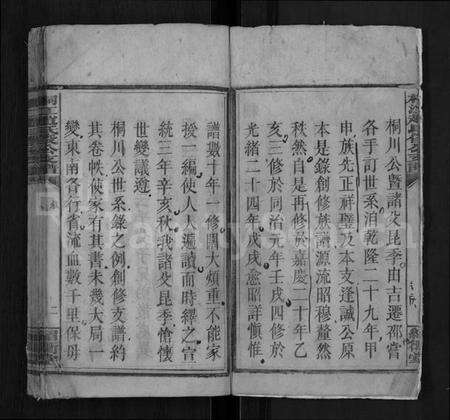 桐川公暨諸父昆季由吉遷祁嘗
各手訂世系洎乾隆二十九年甲
申族先正祥璧及本支逢誠公原
本是錄創修族譜源流昭穆釐然
秩然自是再修於嘉慶二十年乙
亥三修於同治元年壬戌四修於
光緒二十四年戊戌愈詳愼惟
譜數十年一修闊大煩重不能家
授一編使人人遍讀而時繹之宣
統三年辛亥秋我諸父昆季愴懷
世變議遵
桐川公世系錄之例創修支譜約
其卷帙使家有其書未幾大局一
變東南各行省流血數千里保毋